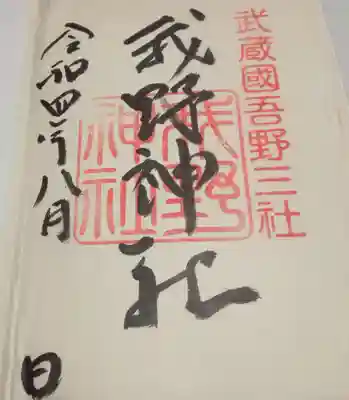 武蔵國吾野三社
我野神社
我野神社
令和四年八月
日